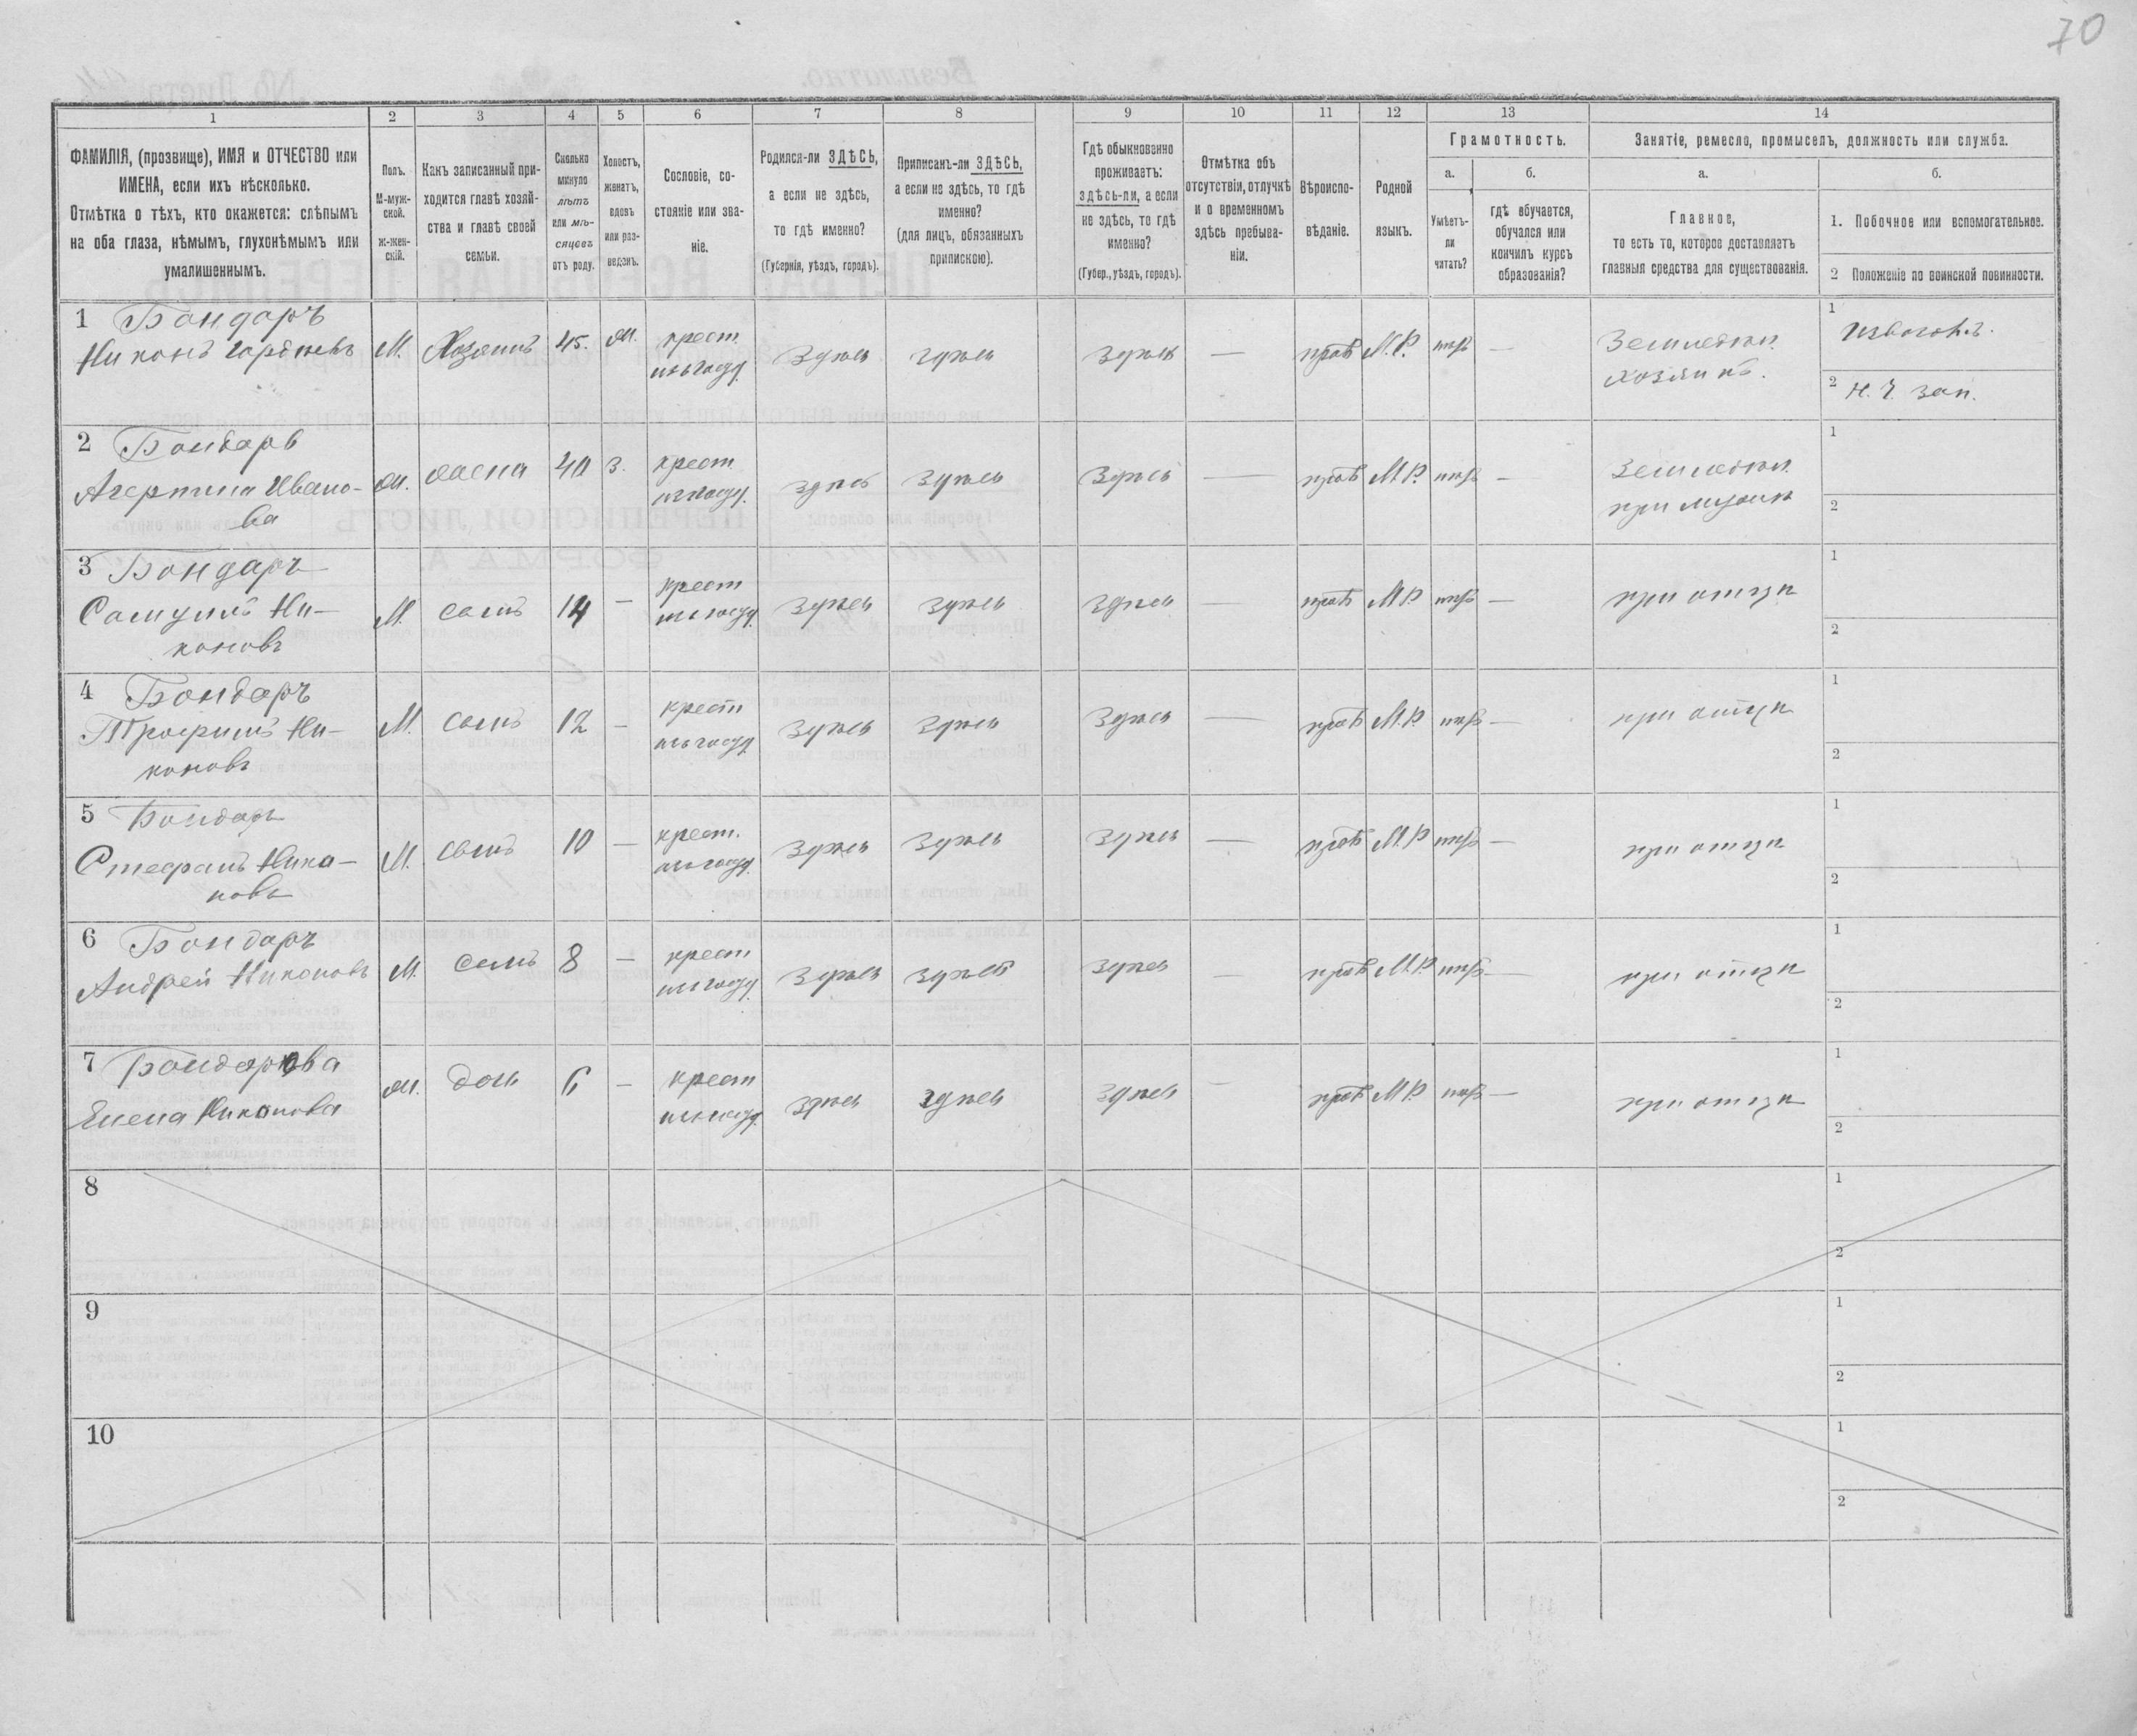 70
1 2 3 4 5 6 7 8 9 10 11 12 13 14
ФАМИЛІЯ, (прозвище), ИМЯ и ОТЧЕСТВО или
ИМЕНА, если ихъ нѣсколько.
Отмѣтка о тѣхъ, кто окажется: слѣпымъ
на оба глаза, нѣмымъ, глухонѣмымъ или
умалишеннымъ.
Полъ.
М-муж-
ской.
ж-жен-
скій.
Какъ записанный при-
ходится главѣ хозяй-
ства и главѣ своей
семьи.
Сколько
минуло
лѣтъ
или мѣ-
сяцевъ
отъ роду.
Холостъ,
женатъ,
вдовъ
или раз-
веденъ.
Сословіе, со-
стояніе или зва-
ніе.
Родился-ли ЗДѢСЬ,
а если не здѣсь,
то гдѣ именно?
(Губернія, уѣздъ, городъ).
Приписанъ-ли ЗДѢСЬ,
а если не здѣсь, то гдѣ
именно?
(для лицъ, обязанныхъ
припискою).
Гдѣ обыкновенно
проживаетъ:
здѣсь-ли, а если
не здѣсь, то гдѣ
именно?
(Губер., уѣздъ, городъ).
Отмѣтка объ
отсутствіи, отлучкѣ
и о временномъ
здѣсь пребыва-
ніи.
Вѣроиспо-
вѣданіе.
Родной
языкъ.
Грамотность.
а.
Умѣетъ-
ли
читать?
б.
гдѣ обучается,
обучался или
кончилъ курсъ
образованія?
Занятіе, ремесло, промыселъ, должность или служба.
а.
Главное,
то есть то, которое доставляетъ
главныя средства для существованія.
б.
1. Побочное или вспомогательное.
2 Положеніе по воинской повинности.
1 Бондаръ
Никонъ М. Хозяинъ 45. крест. здѣсь здѣсь здѣсь — прав М.Р. — Земледѣл.
хозяинъ.
1
2 зап.
2 Бондарь
Ивано-
ва жена 40 з. крест. здѣсь здѣсь здѣсь — прав М.Р. — Земледѣл.
при мужѣ
1
2
3 Бондаръ
Ни-
коновъ М. сынъ 14 — крест здѣсь здѣсь здѣсь — прав М.Р. — при отцѣ
1
2
4 Бондаръ
Трофимъ Ни-
коновъ М. сынъ 12 — крест здѣсь здѣсь здѣсь — прав М.Р. — при отцѣ
1
2
5 Бондаръ
Стефанъ Нико-
новъ М. сынъ 10 — крест. здѣсь здѣсь здѣсь — прав М.Р. — при отцѣ
1
2
6 Бондаръ
Андрей Никоновъ М. сынъ 8 — крест здѣсь здѣсь здѣсь — прав М.Р. — при отцѣ
1
2
7 Бондарова
Елена Никонова ж. дочь 6 — крест здѣсь здѣсь здѣсь — прав М.Р. — при отцѣ
1
2
8
1
2
9
1
2
10
1
2